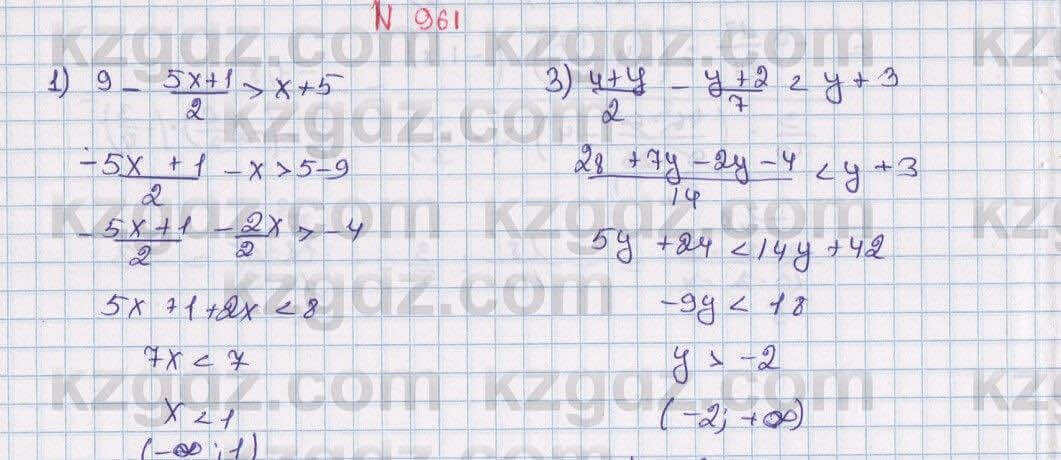 N 961
1) 9 - (5x+1)/2 > x+5
-(5x+1)/2 - x > 5-9
-(5x+1)/2 - 2x/2 > -4
5x+1+2x < 8
7x < 7
x < 1
(-∞; 1)
3) (4+y)/2 - (y+2)/7 < y+3
(28+7y-2y-4)/14 < y+3
5y+24 < 14y+42
-9y < 18
y > -2
(-2; +∞)
kzgdz.com
kzgdz.com
kzgdz.com
kzgdz.com
kzgdz.com
kzgdz.com
kzgdz.com
kzgdz.com